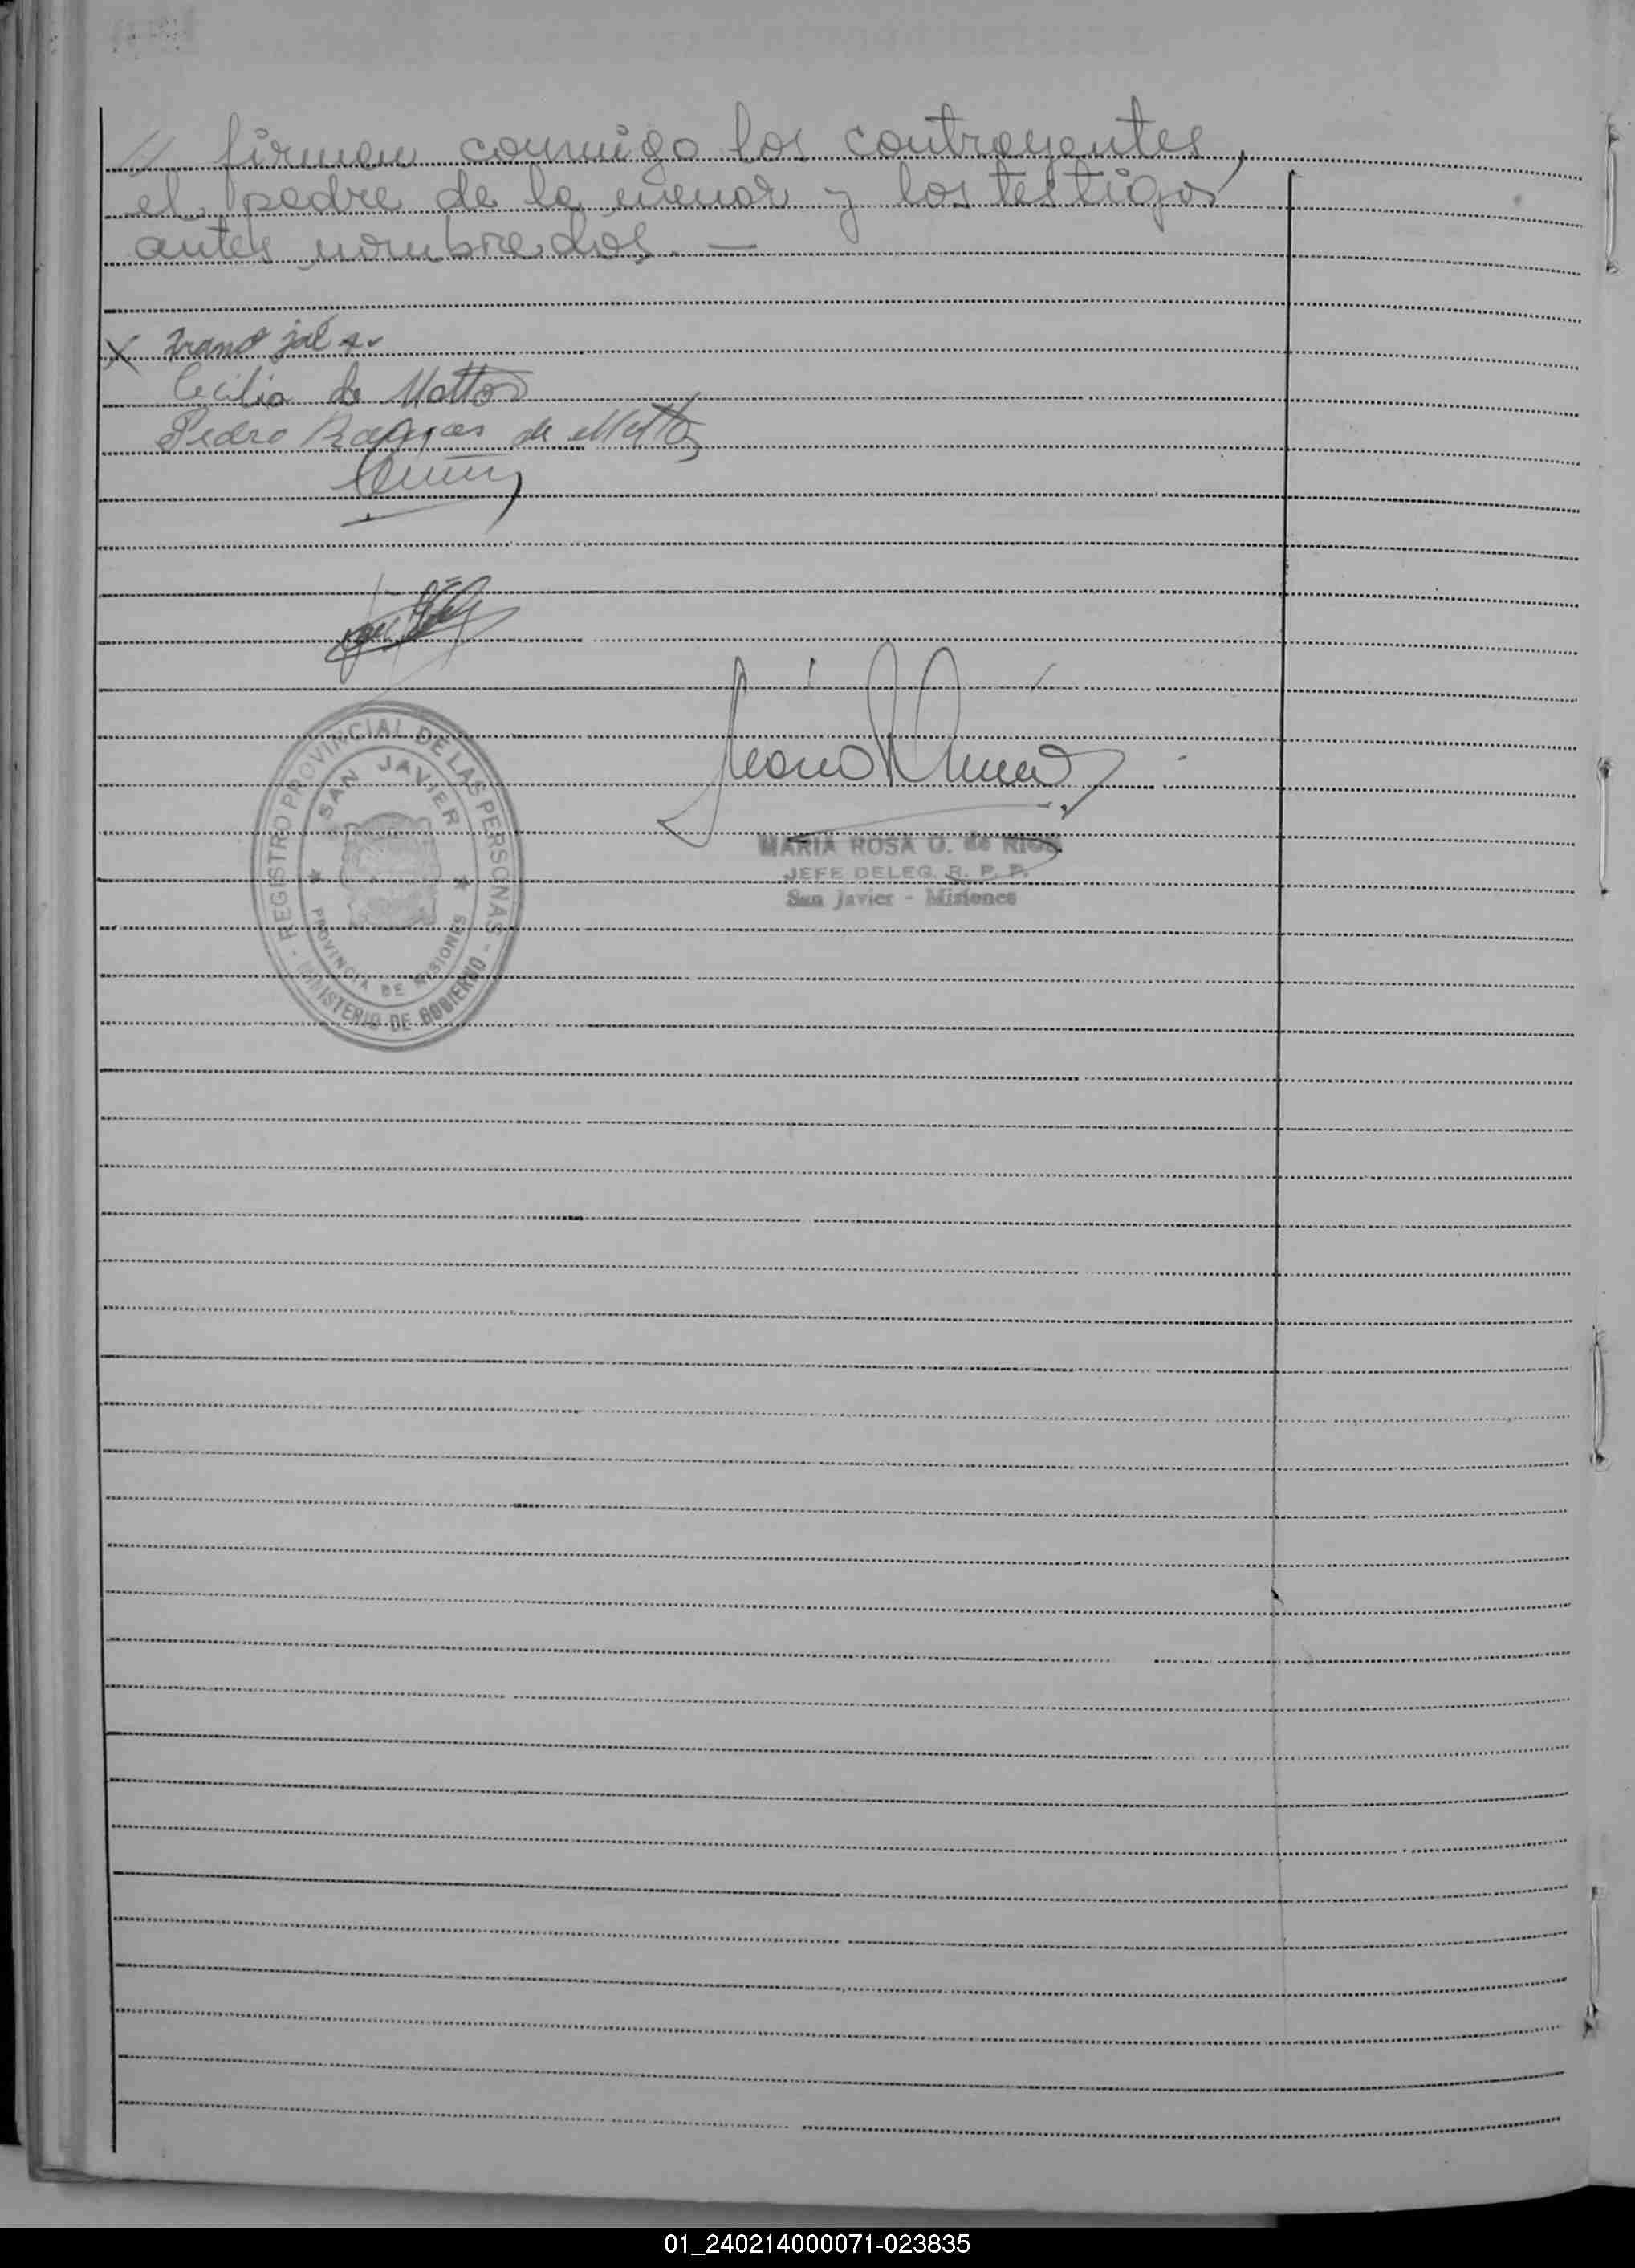 // firman conmigo los contrayentes,
el padre de la menor y los testigos
antes nombrados. —
X
Cecilia de Mattos
Pedro de Mattos
REGISTRO PROVINCIAL DE LAS PERSONAS
SAN JAVIER
PROVINCIA DE MISIONES
- MINISTERIO DE GOBIERNO -
MARIA ROSA O. de RIOS
JEFE DELEG. R. P. P.
San Javier - Misiones
01_240214000071-023835